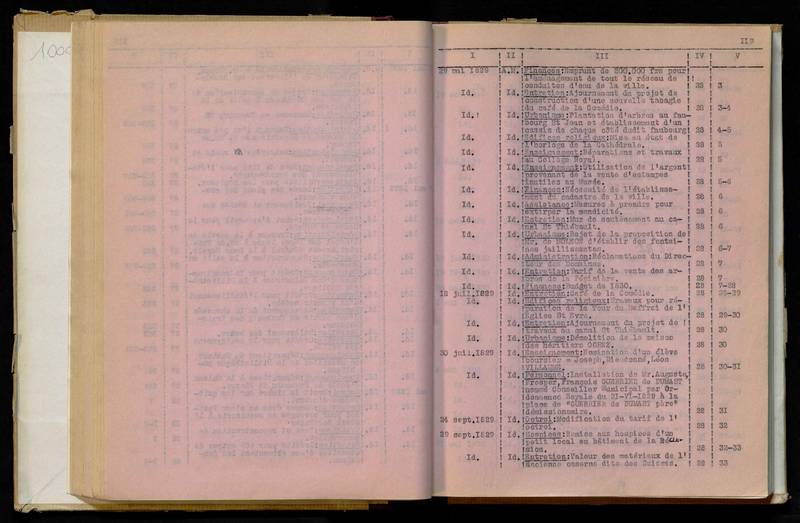 1000
119
I II III IV V
29 mai 1829 A.M. Finances:Emprunt de 200.000 frs pour
l'aménagement de tout le réseau de
conduites d'eau de la ville. 28 3
Id. Id. Entretien:Ajournement du projet de
construction d'une nouvelle tabagie
du café de la Comédie. 28 3-4
Id. Id. Urbanisme:Plantation d'arbres au fau-
bourg St Jean et établissement d'un
cassis de chaque côté dudit faubourg 28 4-5
Id. Id. Edifices religieux:Mise en état de
l'horloge de la Cathédrale. 28 5
Id. Id. Enseignement:Réparations et travaux
au Collège Royal. 28 5
Id. Id. Enseignement:Utilisation de l'argent
provenant de la vente d'estampes
inutiles au Musée. 28 5-6
Id. Id. Finances:Nécessité de l'établisse-
ment du cadastre de la ville. 28 6
Id. Id. Assistance:Mesures à prendre pour
extirper la mendicité. 28 6
Id. Id. Entretien:Mur de soutènement au ca-
nal St Thiébault. 28 6
Id. Id. Urbanisme:Rejet de la proposition de
Mr. de d'établir des fontai-
nes jaillissantes. 28 6-7
Id. Id. Administration:Réclamations du Direc-
teur des Domaines. 28 7
Id. Id. Entretien:Tarif de la vente des ar-
bres de la Pépinière. 28 7
Id. Id. Finances:Budget de 1830. 28 7-28
18 juil.1829 Id. Entretien:Café de la Comédie. 28 28-29
Id. Id. Edifices religieux:Travaux pour ré-
paration de la Tour du Beffroi de l'
Eglise St Evre. 28 29-30
Id. Id. Entretien:Ajournement du projet de
travaux au canal St Thiébault. 28 30
Id. Id. Urbanisme:Démolition de la maison
des héritiers OGREZ. 28 30
30 juil.1829 Id. Enseignement:Nomination d'un élève
boursier = Joseph,Dieudonné,Léon
VILLAUME. 28 30-31
Id. Id. Personnel:Installation de Mr.Auguste,
Prosper,François GUERRIER de DUMAST
comme Conseiller Municipal par Or-
donnance Royale du 21-VI-1829 à la
place de "GUERRIER de DUMAST père"
démissionnaire. 28 31
24 sept.1829 Id. Octroi:Modification du tarif de l'
octroi. 28 32
29 sept.1829 Id. Hospices:Remise aux hospices d'un
petit local en bâtiment de la Réu-
nion. 28 32-33
Id. Id. Entretien:Valeur des matériaux de l'
Ancienne caserne dite des Suisses. 28 33